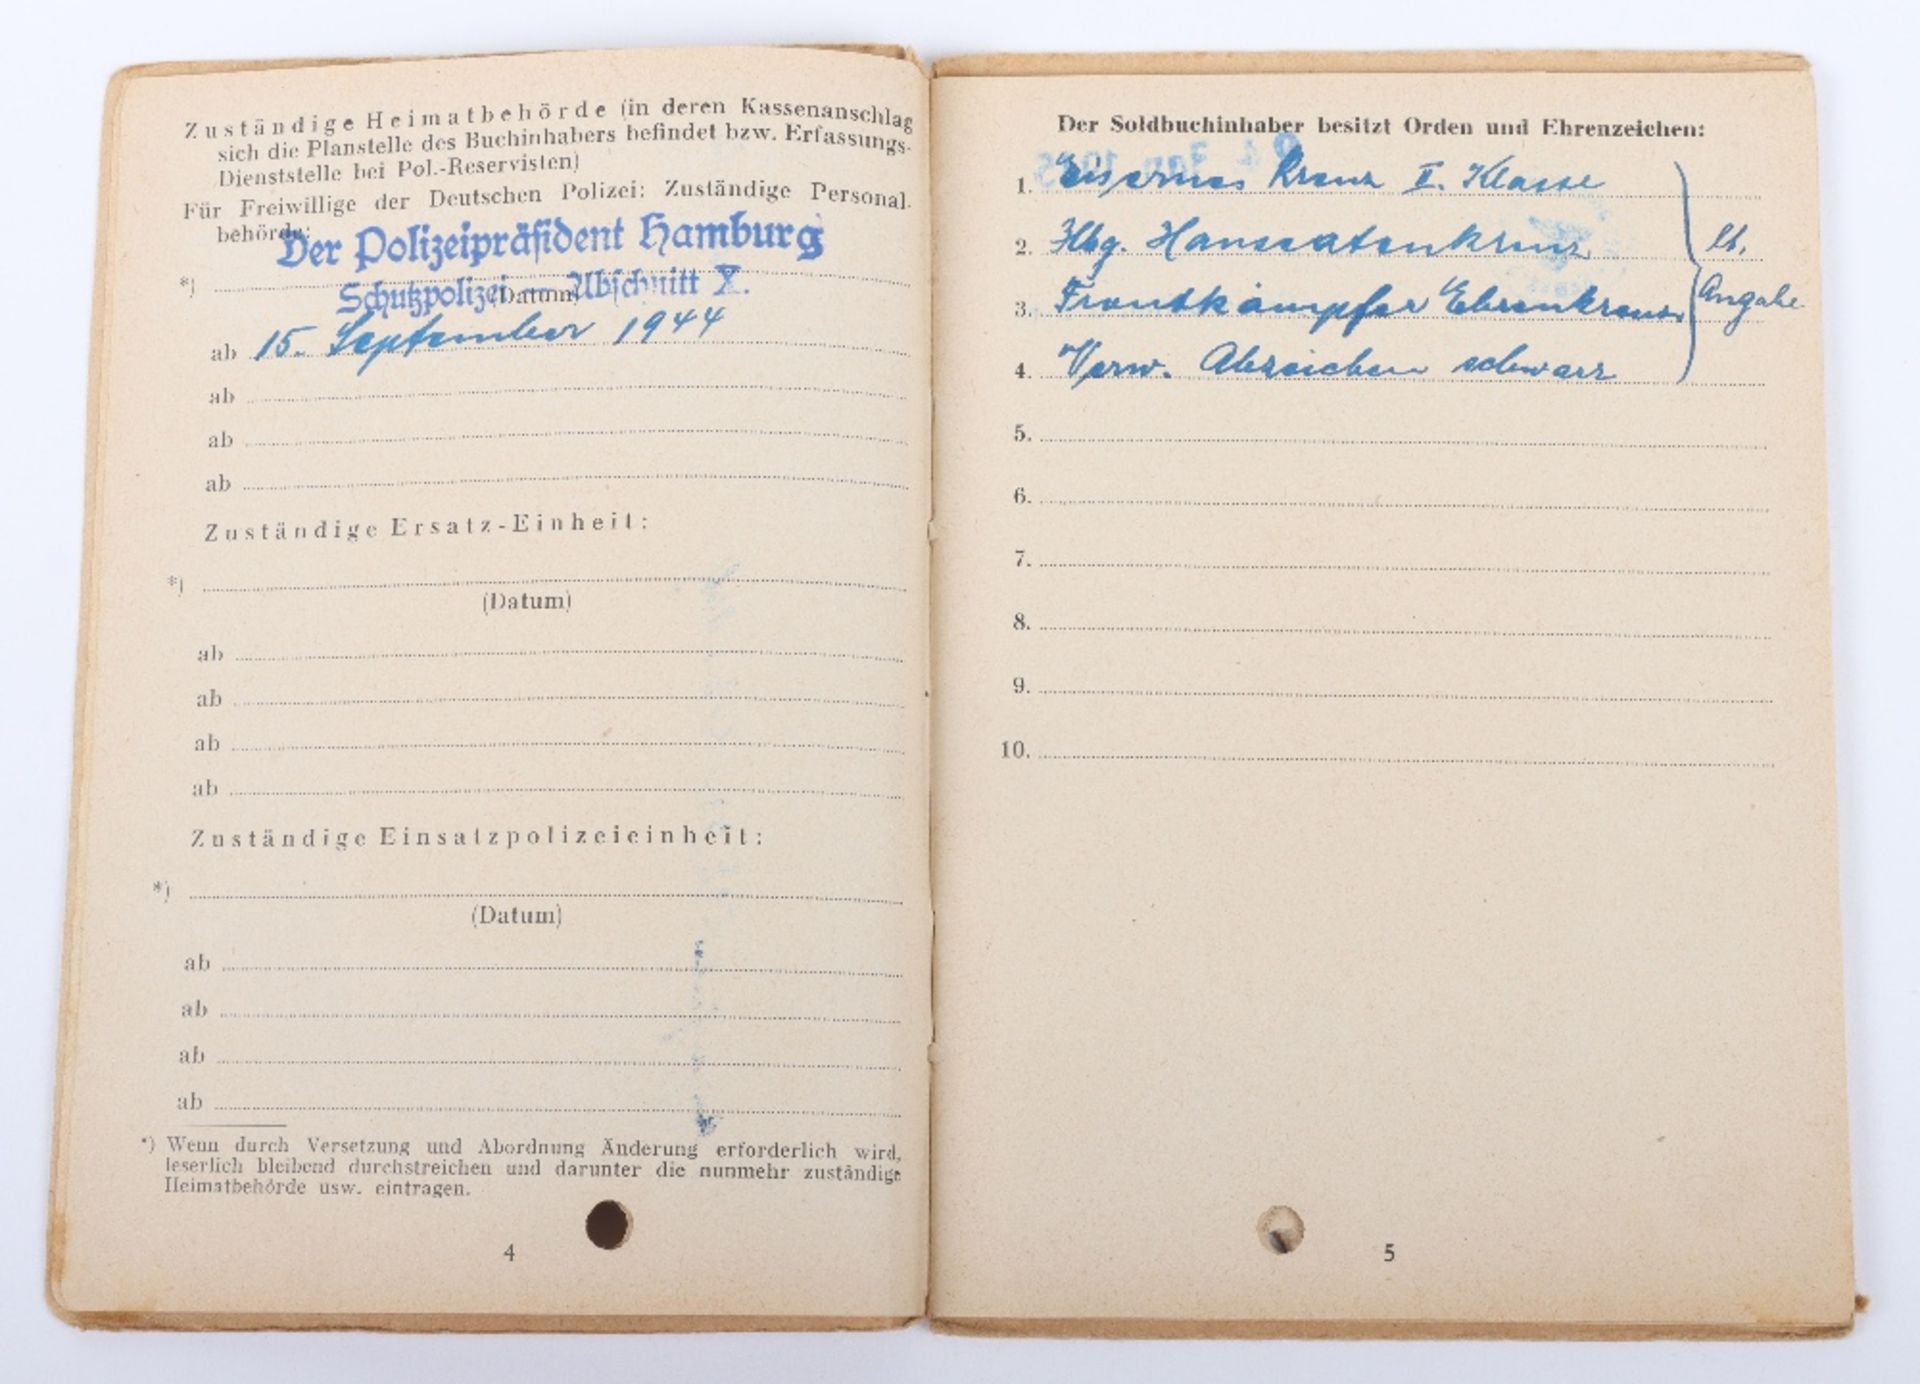 Zuständige Heimatbehörde (in deren Kassenanschlag
sich die Planstelle des Buchinhabers befindet bzw. Erfassungs-
Dienststelle bei Pol.-Reservisten)
Für Freiwillige der Deutschen Polizei: Zuständige Personal-
behörde:
Der Polizeipräsident Hamburg
*)
Schutzpolizei — Abschnitt X.
(Datum)
ab 15. September 1944
ab
ab
ab
Zuständige Ersatz-Einheit:
*)
(Datum)
ab
ab
ab
ab
Zuständige Einsatzpolizeieinheit:
*)
(Datum)
ab
ab
ab
ab
*) Wenn durch Versetzung und Abordnung Änderung erforderlich wird,
leserlich bleibend durchstreichen und darunter die nunmehr zuständige
Heimatbehörde usw. eintragen.
4
Der Soldbuchinhaber besitzt Orden und Ehrenzeichen:
1. Eisernes Kreuz II. Klasse
2. Hbg. Hanseatenkreuz
3. Frontkämpfer Ehrenkreuz
4. Verw. Abzeichen schwarz
lt.
Angabe
5.
6.
7.
8.
9.
10.
5